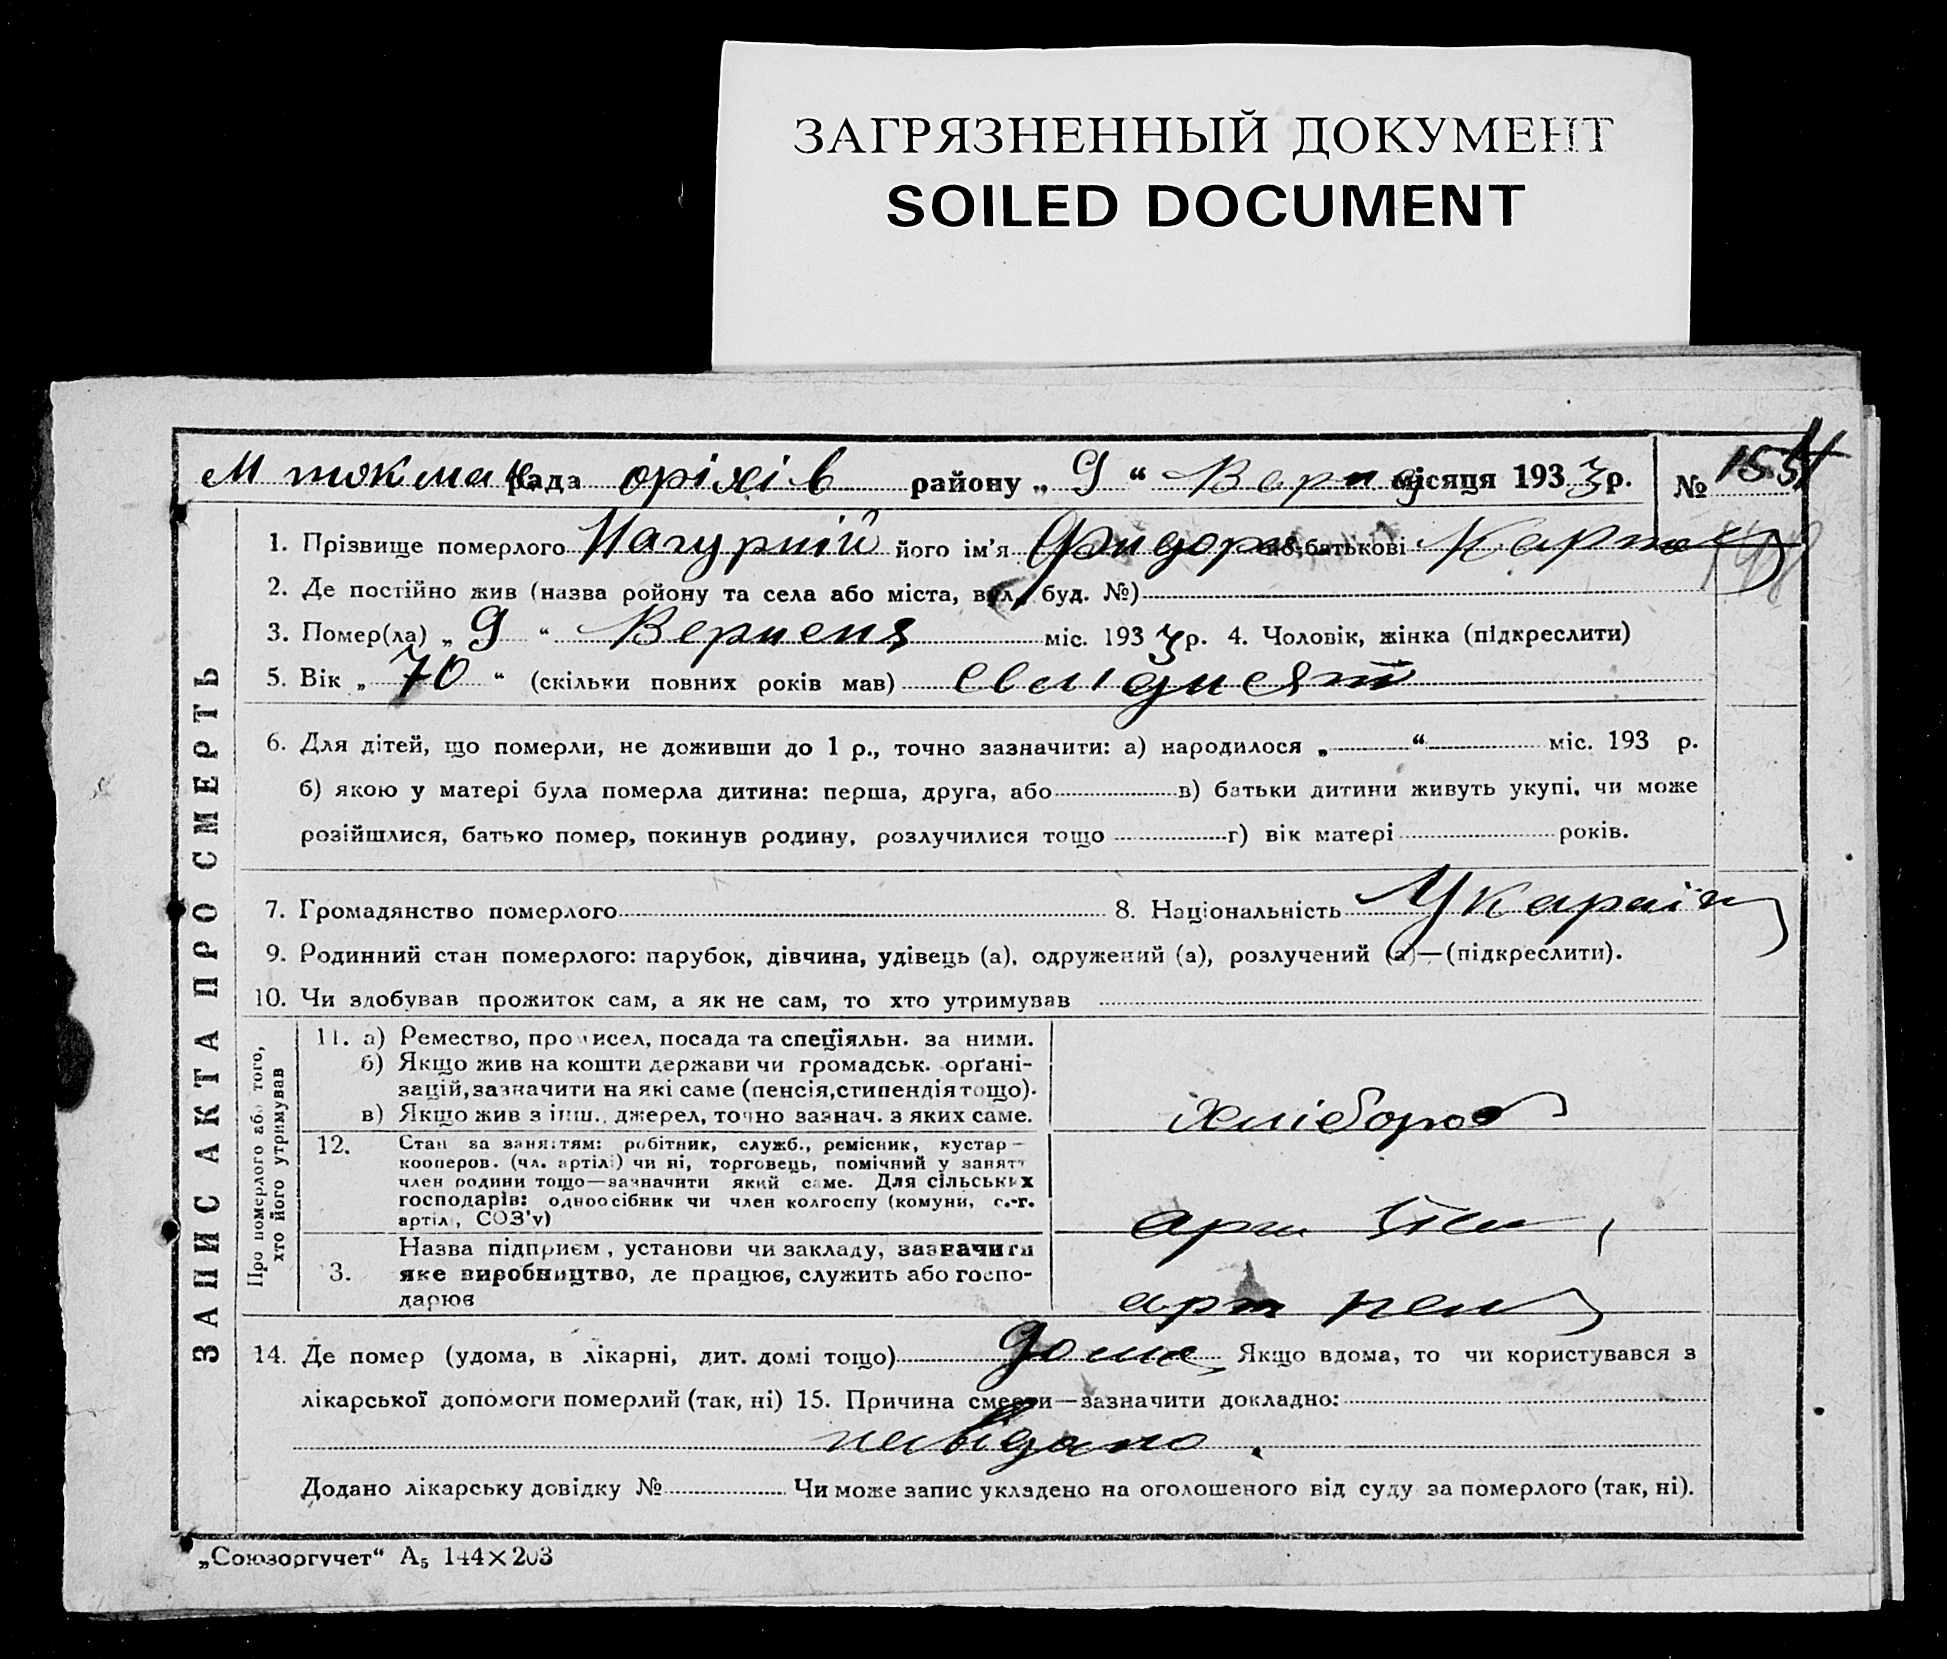 ЗАГРЯЗНЕННЫЙ ДОКУМЕНТ
SOILED DOCUMENT
М токмак рада оріхів району „ 9 “ місяця 1933 р. №
1. Прізвище померлого Нагурній його ім'я по-батькові Карпов
2. Де постійно жив (назва ройону та села або міста, вул., буд. №)
3. Помер(ла) „ 9 “ міс. 1933 р. 4. Чоловік, жінка (підкреслити)
5. Вік „ 70 “ (скільки повних років мав)
6. Для дітей, що померли, не доживши до 1 р., точно зазначити: а) народилося „ “ міс. 193 р.
б) якою у матері була померла дитина: перша, друга, або в) батьки дитини живуть укупі, чи може
розійшлися, батько помер, покинув родину, розлучилися тощо г) вік матері років.
7. Громадянство померлого 8. Національність
9. Родинний стан померлого: парубок, дівчина, удівець (а), одружений (а), розлучений (а)—(підкреслити).
10. Чи здобував прожиток сам, а як не сам, то хто утримував
ЗАПИС АКТА ПРО СМЕРТЬ
Про померлого або того, хто його утримував
11. а) Ремество, промисел, посада та специяльн. за ними.
б) Якщо жив на кошти держави чи громадськ. органі-
зацій, зазначити на які саме (пенсія, стипендія тощо).
в) Якщо жив з інш. джерел, точно зазнач. з яких саме.
хлібороб
12. Стан за заняттям: робітник, служб., ремісник, кустар—
кооперов. (чл. артілі) чи ні, торговець, помічний у занятт
член родини тощо—зазначити який саме. Для сільських
господарів: одноосібник чи член колгоспу (комуни, с.-г.
артілі, СОЗ'у)
Назва підприєм, установи чи закладу, зазначити
3. яке виробництво, де працює, служить або госпо-
дарює
14. Де помер (удома, в лікарні, дит. домі тощо) дома Якщо вдома, то чи користувався з
лікарської допомоги померлий (так, ні) 15. Причина смерти—зазначити докладно:
невідано.
Додано лікарську довідку № Чи може запис укладено на оголошеного від суду за померлого (так, ні).
„Союзоргучет“ А5 144×203